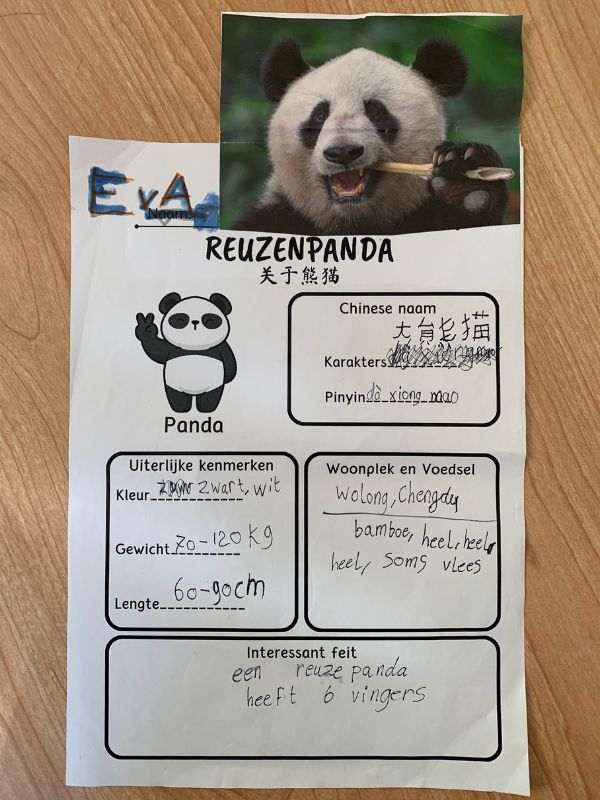 EvA
Naam:
REUZENPANDA
关于熊猫
Panda
Chinese naam
大熊猫
Karakters
Pinyin dà xiong mao
Uiterlijke kenmerken
Kleur zwart, wit
Gewicht 70-120 kg
Lengte 60-90cm
Woonplek en Voedsel
Wolong, Chengdu
bamboe, heel, heel,
heel, soms vlees
Interessant feit
een reuze panda
heeft 6 vingers